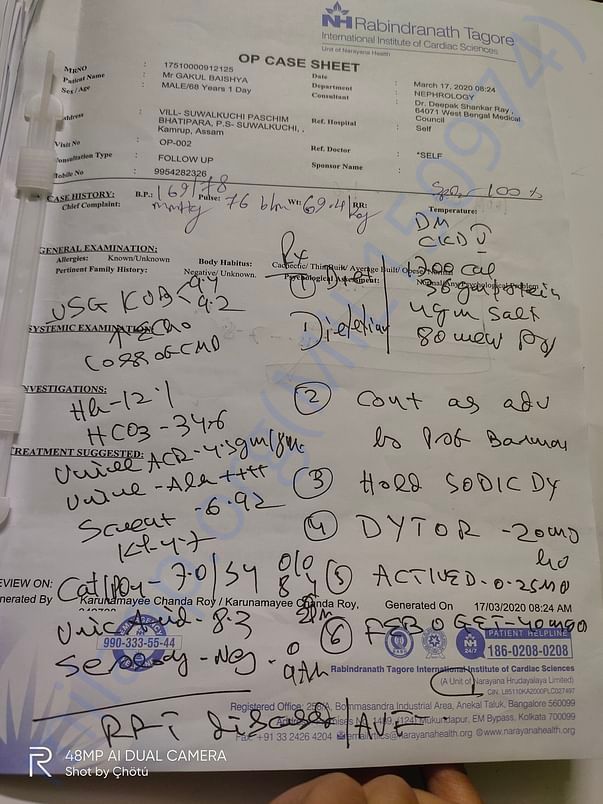 NH Rabindranath Tagore
International Institute of Cardiac Sciences
Unit of Narayana Health
OP CASE SHEET
MRNO : 17510000912125
Patient Name : Mr GAKUL BAISHYA
Sex / Age : MALE/68 Years 1 Day
Date : March 17, 2020 08:24
Department : NEPHROLOGY
Consultant : Dr. Deepak Shankar Ray , 64071 West Bengal Medical Council
Address : VILL- SUWALKUCHI PASCHIM
BHATIPARA, P.S- SUWALKUCHI, ,
Kamrup, Assam
Ref. Hospital : Self
Visit No : OP-002
Ref. Doctor : *SELF
Consultation Type : FOLLOW UP
Sponsor Name :
Mobile No : 9954282326
SpO2 - 100 %
CASE HISTORY: B.P.: 169/78 mmHg Pulse: 76 b/m Wt: 69.4 kg RR: Temperature:
Chief Complaint:
DM
CKD V
GENERAL EXAMINATION:
Allergies: Known/Unknown Body Habitus: Cachectic/ Thin Built/ Average Built/ Obese/
Pertinent Family History: Negative/ Unknown. Psychological Assessment: Normal/Any Psychological Problem
Rx
① Diet 1200 cal
30 gm protein
4 gm salt
Dietetian
USG KUB < 9.4
9.2
SYSTEMIC EXAMINATION:
INVESTIGATIONS:
Hb - 12.1
HCO3 - 34.6
② Cont as adv
by Prof Barman
TREATMENT SUGGESTED:
Urine ACR - 4.5gm/gm
Urine - Alb ++++
Screat - 6.92
K+ 4.7
③ Hold SODICDY
④ DYTOR - 20
REVIEW ON:
Ca+/PO4 - 7.0/54
⑤ ACTIVED - 0.25
Generated By Karunamayee Chanda Roy / Karunamayee Chanda Roy, Generated On 17/03/2020 08:24 AM
Uric Acid - 8.3
⑥ FEBOGET - 40
EMERGENCY
990-333-55-44
PATIENT HELPLINE
24/7 186-0208-0208
Serology - Neg
Rabindranath Tagore International Institute of Cardiac Sciences
(A Unit of Narayana Hrudayalaya Limited)
CIN. L85110KA2000PLC027497
Registered Office: 258/A, Bommasandra Industrial Area, Anekal Taluk, Bangalore 560099
Mukundapur, EM Bypass, Kolkata 700099
+91 33 2426 4204 @narayanahealth.org www.narayanahealth.org
RRT discussed / AVF
48MP AI DUAL CAMERA
Shot by Çhötú